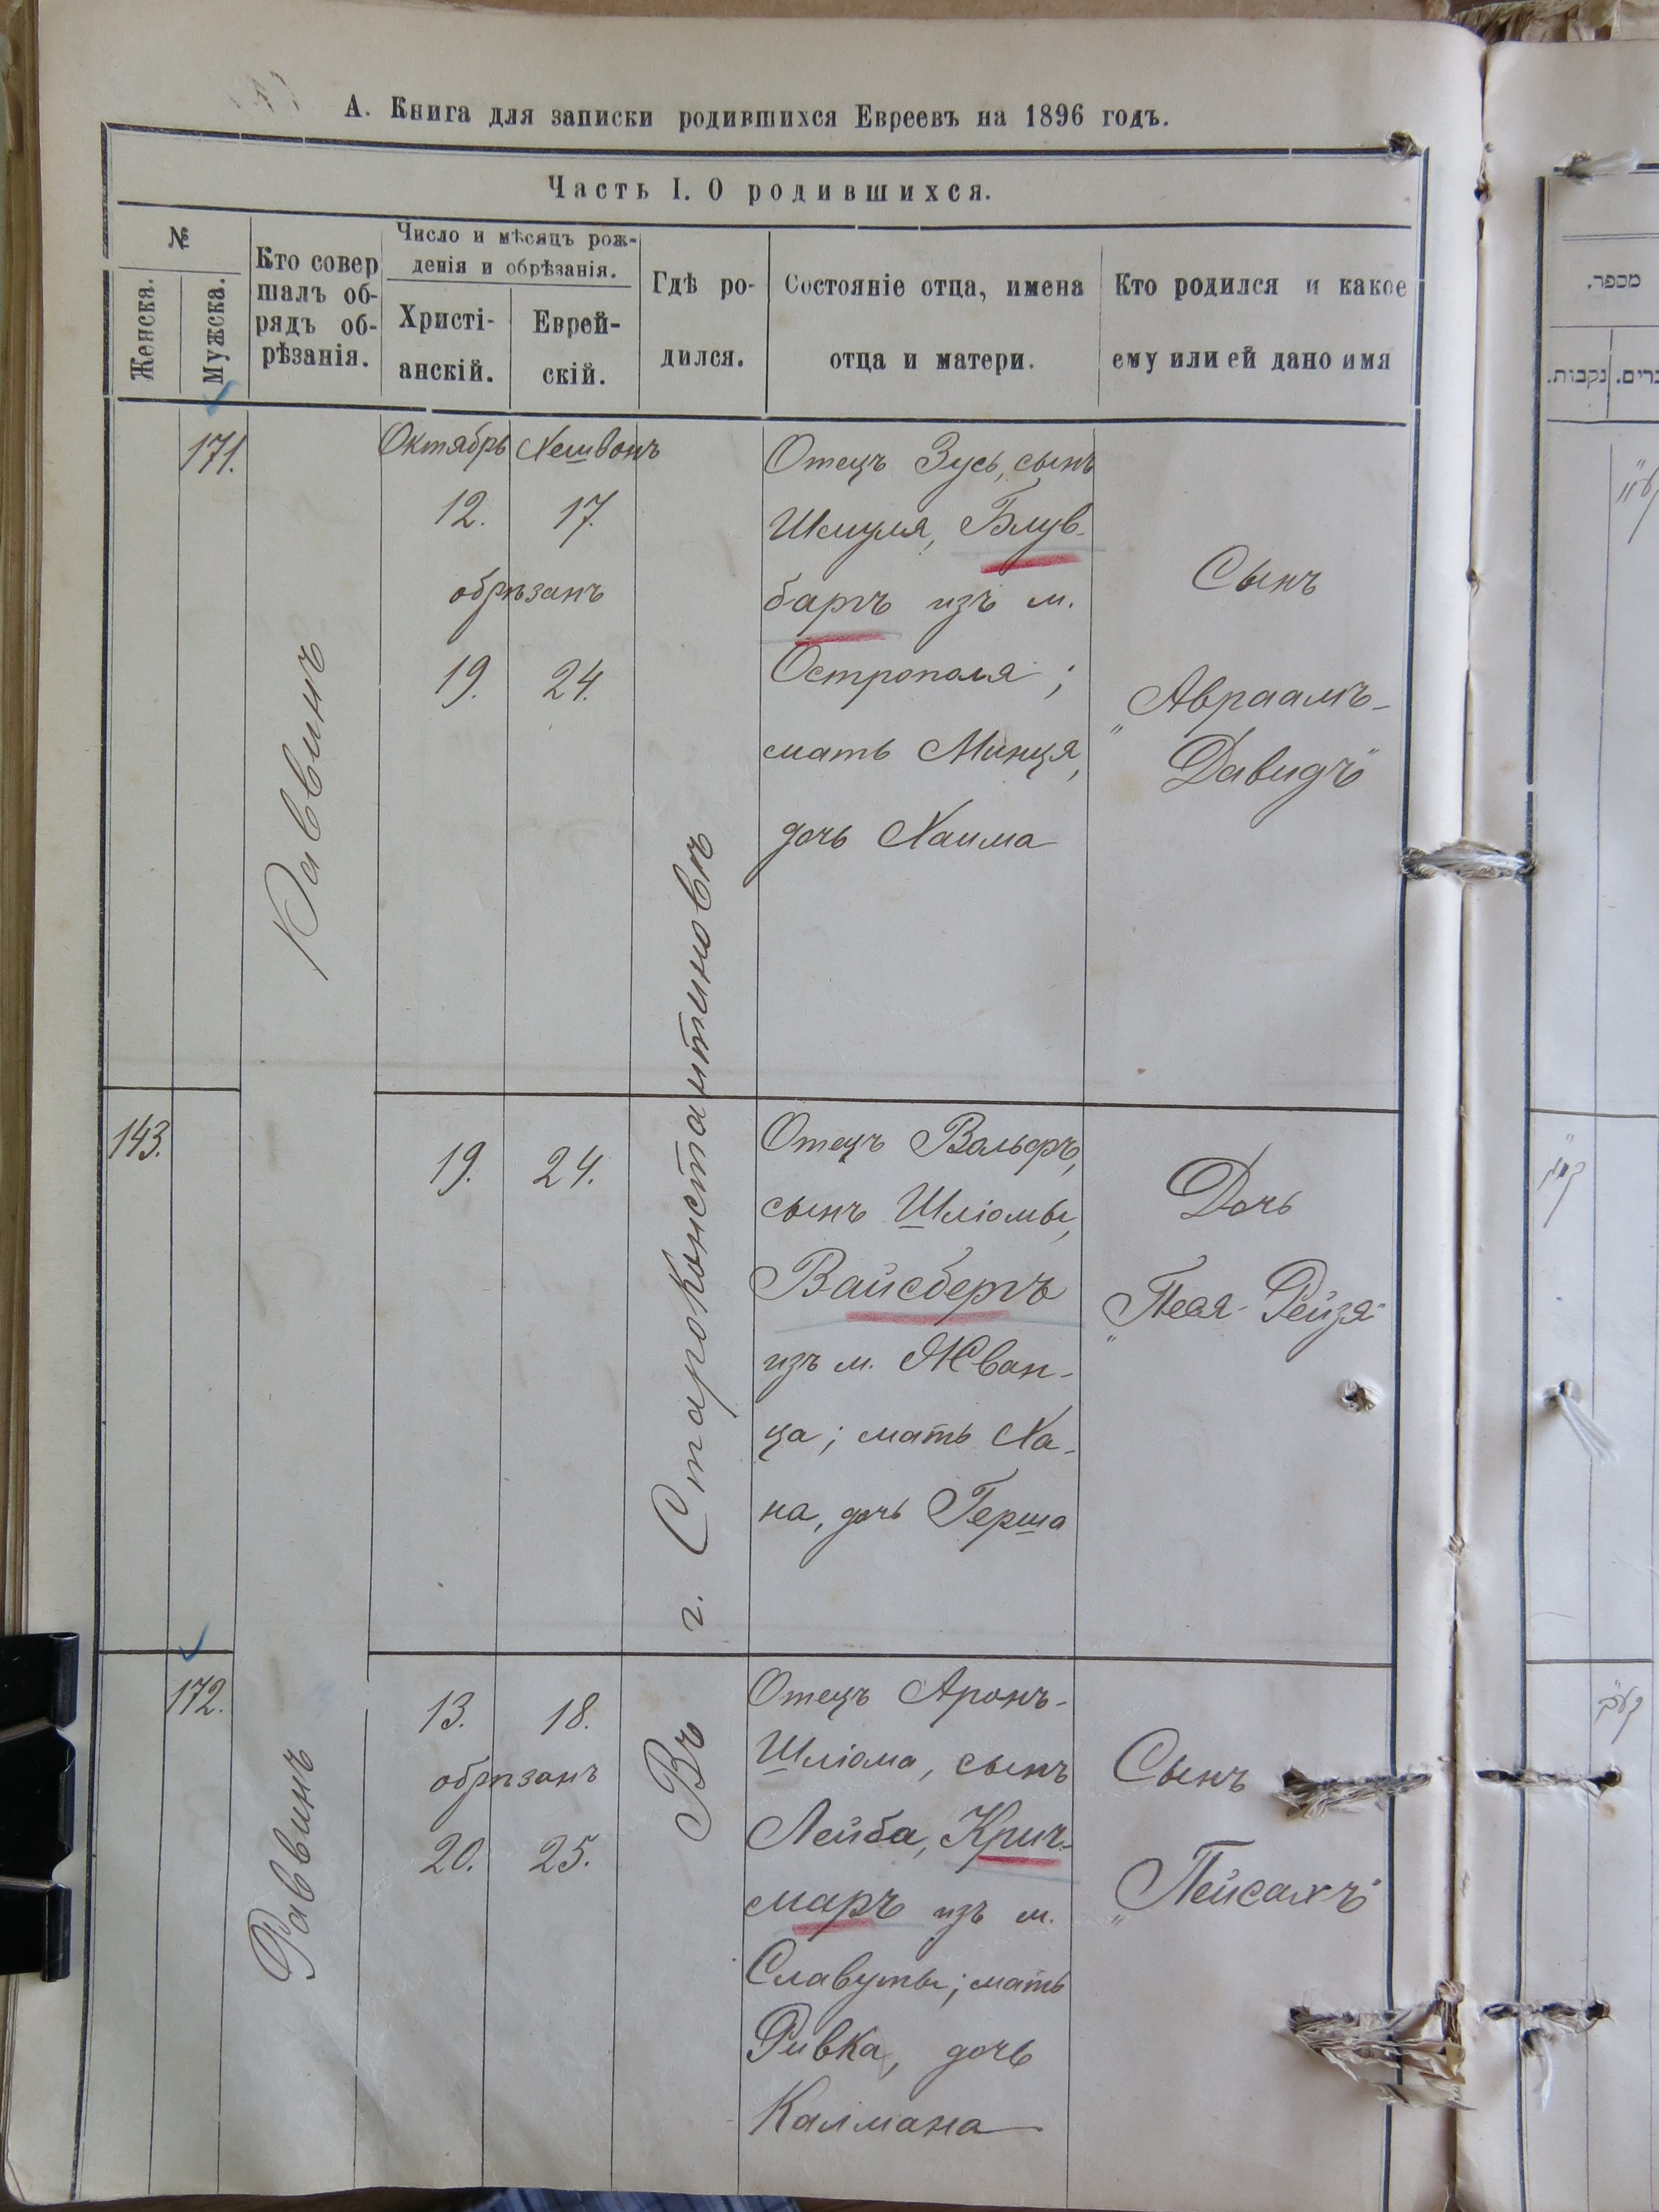 А. Книга для записки родившихся Евреевъ на 1896 годъ.
Часть I. О родившихся.
№
Женска.
Мужска.
Кто совер
шалъ об-
рядъ об-
рѣзанія.
Число и мѣсяцъ рож-
денія и обрѣзанія.
Христі-
анскій.
Еврей-
скій.
Гдѣ ро-
дился.
Состояніе отца, имена
отца и матери.
Кто родился и какое
ему или ей дано имя
171.
Раввинъ
Октябрь Хешвонъ
12. 17.
обрѣзанъ
19. 24.
Въ г. Староконстантиновѣ
Отецъ Зусь, сынъ
Шмуля, Блув-
баръ изъ м.
Острополя;
мать Минця,
дочь Хаима
Сынъ
„Авраамъ-
Давидъ"
143.
19. 24.
Отецъ Вольфъ,
сынъ Шліомы,
Вайсбергъ
изъ м. Жван-
ца; мать Ха-
на, дочь Герша
Дочь
„Песя-Рейзя"
172.
Раввинъ
13. 18.
обрѣзанъ
20. 25.
Отецъ Аронъ-
Шліома, сынъ
Лейба, Крич-
маръ изъ м.
Славуты; мать
Ривка, дочь
Калмана
Сынъ
„Пейсахъ"
מספר.
נקבות.